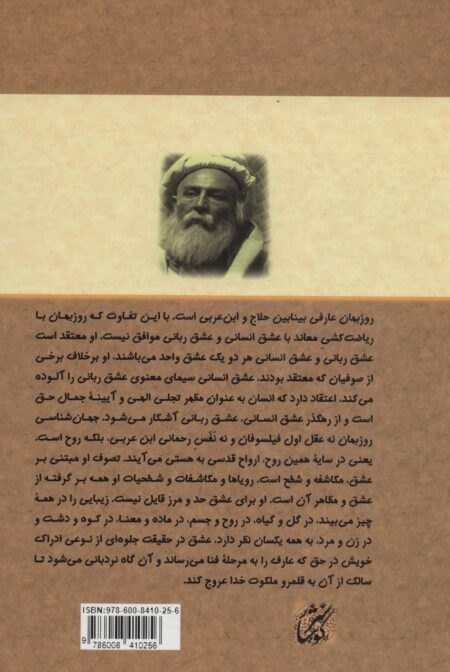 روزبهان عارفی بینابین حلاج و ابن‌عربی است. با این تفاوت که روزبهان با
ریاضت‌کشی معاند با عشق انسانی و عشق ربانی موافق نیست. او معتقد است
عشق ربانی و عشق انسانی هر دو یک عشق واحد می‌باشند، او برخلاف برخی
از صوفیان که معتقد بودند. عشق انسانی سیمای معنوی عشق ربانی را آلوده
می‌کند. اعتقاد دارد که انسان به عنوان مظهر تجلی الهی و آیینهٔ جمال حق
است و از رهگذر عشق انسانی. عشق ربانی آشکار می‌شود. جهان‌شناسی
روزبهان نه عقل اول فیلسوفان و نه نفس رحمانی ابن عربی. بلکه روح است.
یعنی در سایهٔ همین روح. ارواح قدسی به هستی می‌آیند. تصوف او مبتنی بر
عشق. مکاشفه و شطح است. رویاها و مکاشفات و شطحیات او همه بر گرفته از
عشق و مظاهر آن است. او برای عشق حد و مرز قایل نیست. زیبایی را در همهٔ
چیز می‌بیند. در گل و گیاه. در روح و جسم. در ماده و معنا. در کوه و دشت و
در زن و مرد. به همه یکسان نظر دارد. عشق در حقیقت جلوه‌ای از نوعی ادراک
خویش در حق که عارف را به مرحلهٔ فنا می‌رساند و آن گاه نردبانی می‌شود تا
سالک از آن به قلمرو ملکوت خدا عروج کند.
ISBN: 978-600-8410-25-6
9 786008 410256